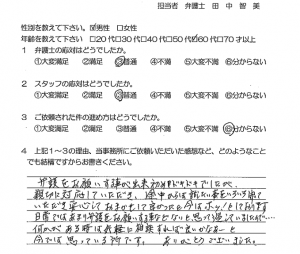 担当者 弁護士 田 中 智 美
性別を教えて下さい。 ☑男性 □女性
年齢を教えて下さい □20代□30代□40代□50代☑60代□70才以上
1 弁護士の応対はどうでしたか。
①大変満足 ②満足 ③普通 ④不満 ⑤大変不満 ⑥分からない
2 スタッフの応対はどうでしたか。
①大変満足 ②満足 ③普通 ④不満 ⑤大変不満 ⑥分からない
3 ご依頼された件の進め方はどうでしたか。
①大変満足 ②満足 ③普通 ④不満 ⑤大変不満 ⑥分からない
4 上記1~3の理由、当事務所にご依頼いただいた感想など、どのようなこと
でも結構ですからお書きください。
弁護をお願いする事が出来
親切に対応していただき、
いただき安心して 今はホッとしております
日常ではあまり弁護をお願いする事などないと思って過していましたが…
何かがある時は気軽に相談すれば良いのかなと
今では思っている所です。ありがとうございました。